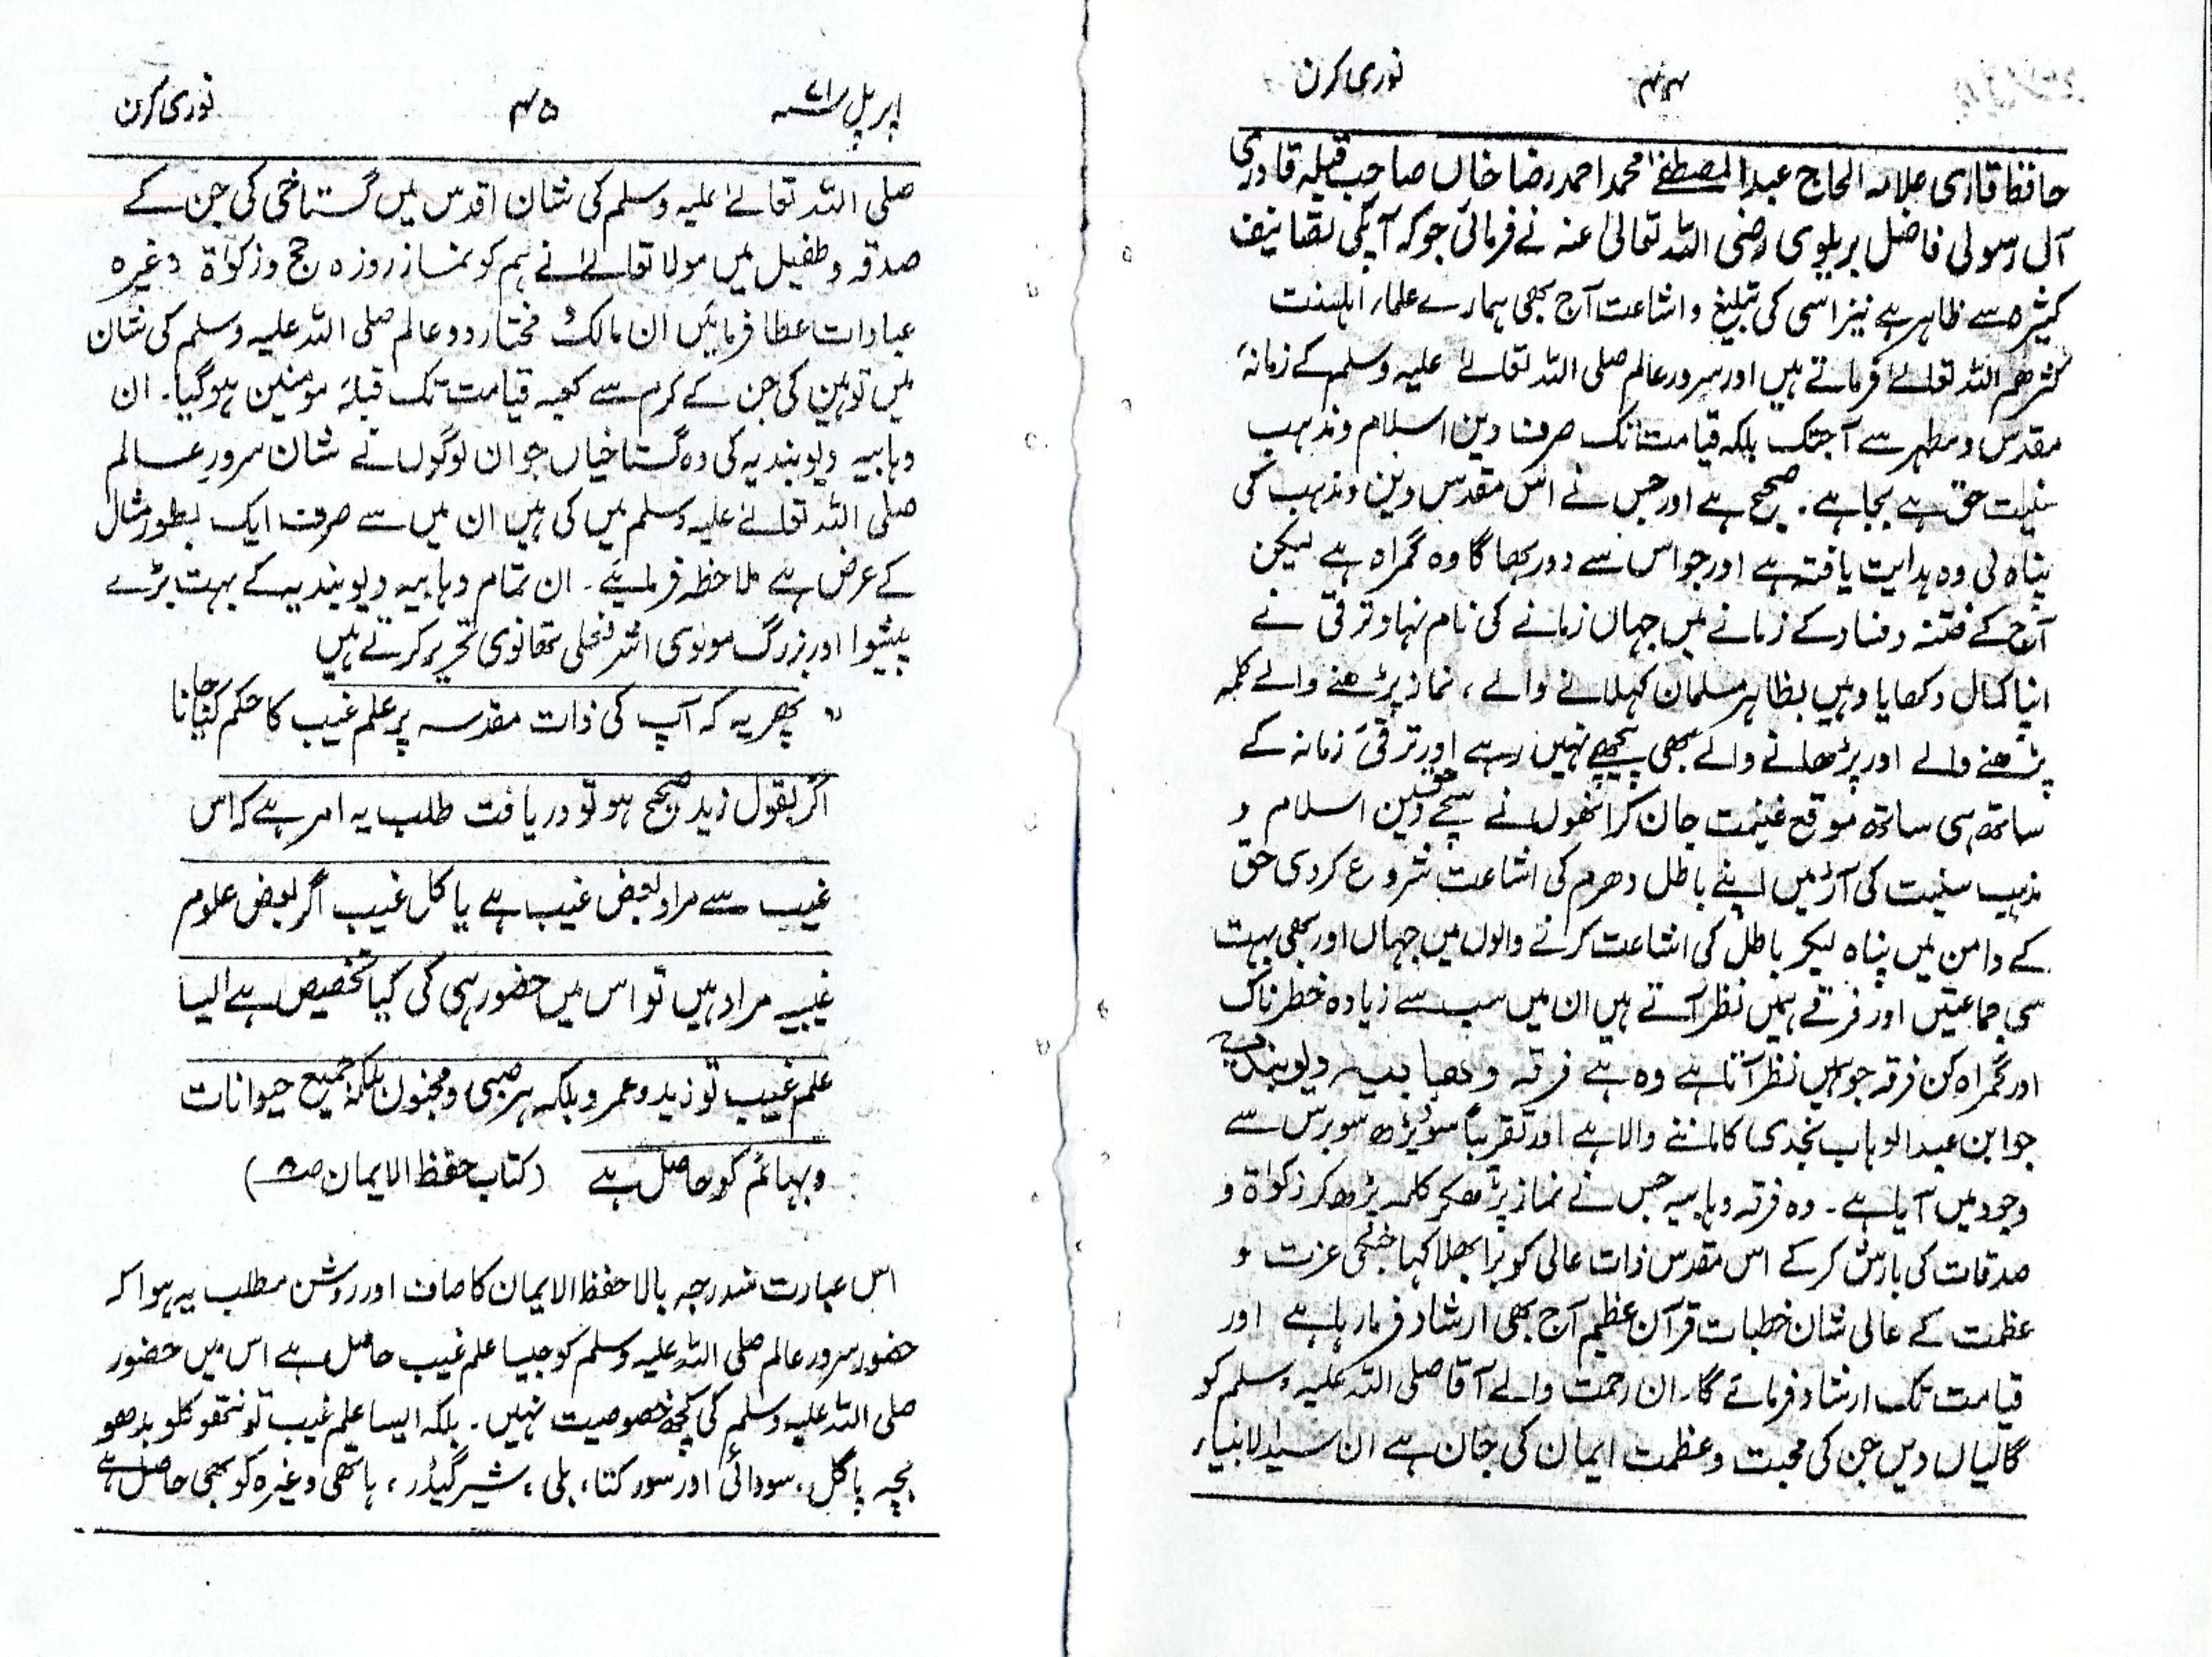 نوری کرن ۴۴
حافظ قاری علامہ الحاج عبدالمصطفےٰ محمد احمد رضا خاں صاحب قبلہ قادری
آل رسولی فاضل بریلوی رضی اللہ تعالیٰ عنہ نے فرمائی جو کہ آپکی تصانیف
کثیرہ سے ظاہر ہے نیز اسی کی تبلیغ و اشاعت آج بھی ہمارے علماء اہلسنت
کثرھم اللہ تعالےٰ فرماتے ہیں اور سرور عالم صلی اللہ تعالےٰ علیہ وسلم کے زمانۂ
مقدس و مطہر سے آجتک بلکہ قیامت تک صرف دین اسلام و مذہب
سنیت حق ہے بجا ہے۔ صحیح ہے اور جس نے اس مقدس دین و مذہب کی
پناہ لی وہ ہدایت یافتہ ہے اور جو اس سے دور بھاگا وہ گمراہ ہے لیکن
آج کے فتنہ و فساد کے زمانے میں جہاں زمانے کی نام نہاد ترقی نے
اپنا کمال دکھایا وہیں بظاہر مسلمان کہلانے والے، نماز پڑھنے والے کلمہ
پڑھنے والے اور پڑھانے والے بھی پیچھے نہیں رہے اور ترقیٔ زمانہ کے
ساتھ ہی ساتھ موقع غنیمت جان کر انھوں نے سچے دین اسلام و
مذہب سنیت کی آڑ میں اپنے باطل دھرم کی اشاعت شروع کردی حق
کے دامن میں پناہ لیکر باطل کی اشاعت کرنے والوں میں جہاں اور بھی بہت
سی جماعتیں اور فرقے ہمیں نظر آتے ہیں ان میں سب سے زیادہ خطرناک
اور گمراہ کن فرقہ جو ہمیں نظر آتا ہے وہ ہے فرقہ وھابیہ دیوبندیہ
جو ابن عبدالوہاب نجدی کا ماننے والا ہے اور تقریباً سو ڈیڑھ سو برس سے
وجود میں آیا ہے۔ وہ فرقہ وہابیہ جس نے نماز پڑھکر کلمہ پڑھ کر زکوٰۃ و
صدقات کی بارش کر کے اس مقدس ذات عالی کو برا بھلا کہا جنکی عزت و
عظمت کے عالی شان خطبات قرآن عظیم آج بھی ارشاد فرما رہا ہے اور
قیامت تک ارشاد فرمائے گا۔ ان رحمت والے آقا صلی اللہ علیہ وسلم کو
گالیاں دیں جن کی محبت و عظمت ایمان کی جان ہے ان سید الانبیاء
اپریل ۷۱ء ۴۵ نوری کرن
صلی اللہ تعالےٰ علیہ وسلم کی شان اقدس میں گستاخی کی جن کے
صدقہ و طفیل میں مولا تعالےٰ نے ہم کو نماز روزہ حج و زکوٰۃ وغیرہ
عبادات عطا فرمائیں ان مالک و مختار دو عالم صلی اللہ علیہ وسلم کی شان
میں توہین کی جن کے کرم سے کعبہ قیامت تک قبلۂ مومنین ہوگیا۔ ان
وہابیہ دیوبندیہ کی وہ گستاخیاں جو ان لوگوں نے شان سرور عالم
صلی اللہ تعالےٰ علیہ وسلم میں کی ہیں ان میں سے صرف ایک بطور مثال
کے عرض ہے ملاحظہ فرمایئے۔ ان تمام وہابیہ دیوبندیہ کے بہت بڑے
پیشوا اور بزرگ مولوی اشرفعلی تھانوی تحریر کرتے ہیں
" پھر یہ کہ آپ کی ذات مقدسہ پر علم غیب کا حکم کیا جانا
اگر بقول زید صحیح ہو تو دریافت طلب یہ امر ہے کہ اس
غیب سے مراد بعض غیب ہے یا کل غیب اگر بعض علوم
غیبیہ مراد ہیں تو اس میں حضور ہی کی کیا تخصیص ہے ایسا
علم غیب تو زید و عمر و بلکہ ہر صبی و مجنون بلکہ جمیع حیوانات
و بہائم کو حاصل ہے (کتاب حفظ الایمان ص۸)
اس عبارت مندرجہ بالا حفظ الایمان کا صاف اور روشن مطلب یہ ہوا کہ
حضور سرور عالم صلی اللہ علیہ وسلم کو جیسا علم غیب حاصل ہے اس میں حضور
صلی اللہ علیہ وسلم کی کچھ خصوصیت نہیں۔ بلکہ ایسا علم غیب تو نتھو کلو بدھو
بچہ پاگل، سودائی اور سور کتا، بلی، شیر گیڈر، ہاتھی وغیرہ کو بھی حاصل ہے